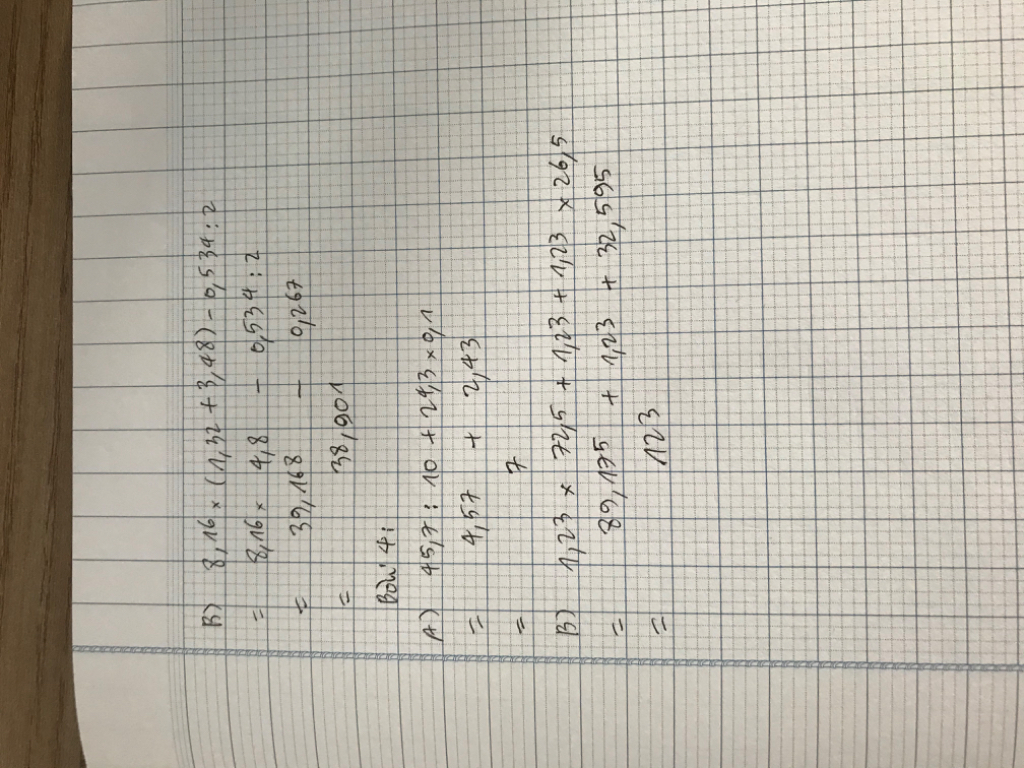 B) 8,16 × (1,32 + 3,48) - 0,534 : 2
= 8,16 × 4,8 - 0,534 : 2
= 39,168 - 0,267
= 38,901
Bài 4:
A) 45,7 : 10 + 24,3 × 0,1
= 4,57 + 2,43
= 7
B) 1,23 × 72,5 + 1,23 + 1,23 × 26,5
= 89,175 + 1,23 + 32,595
= 123